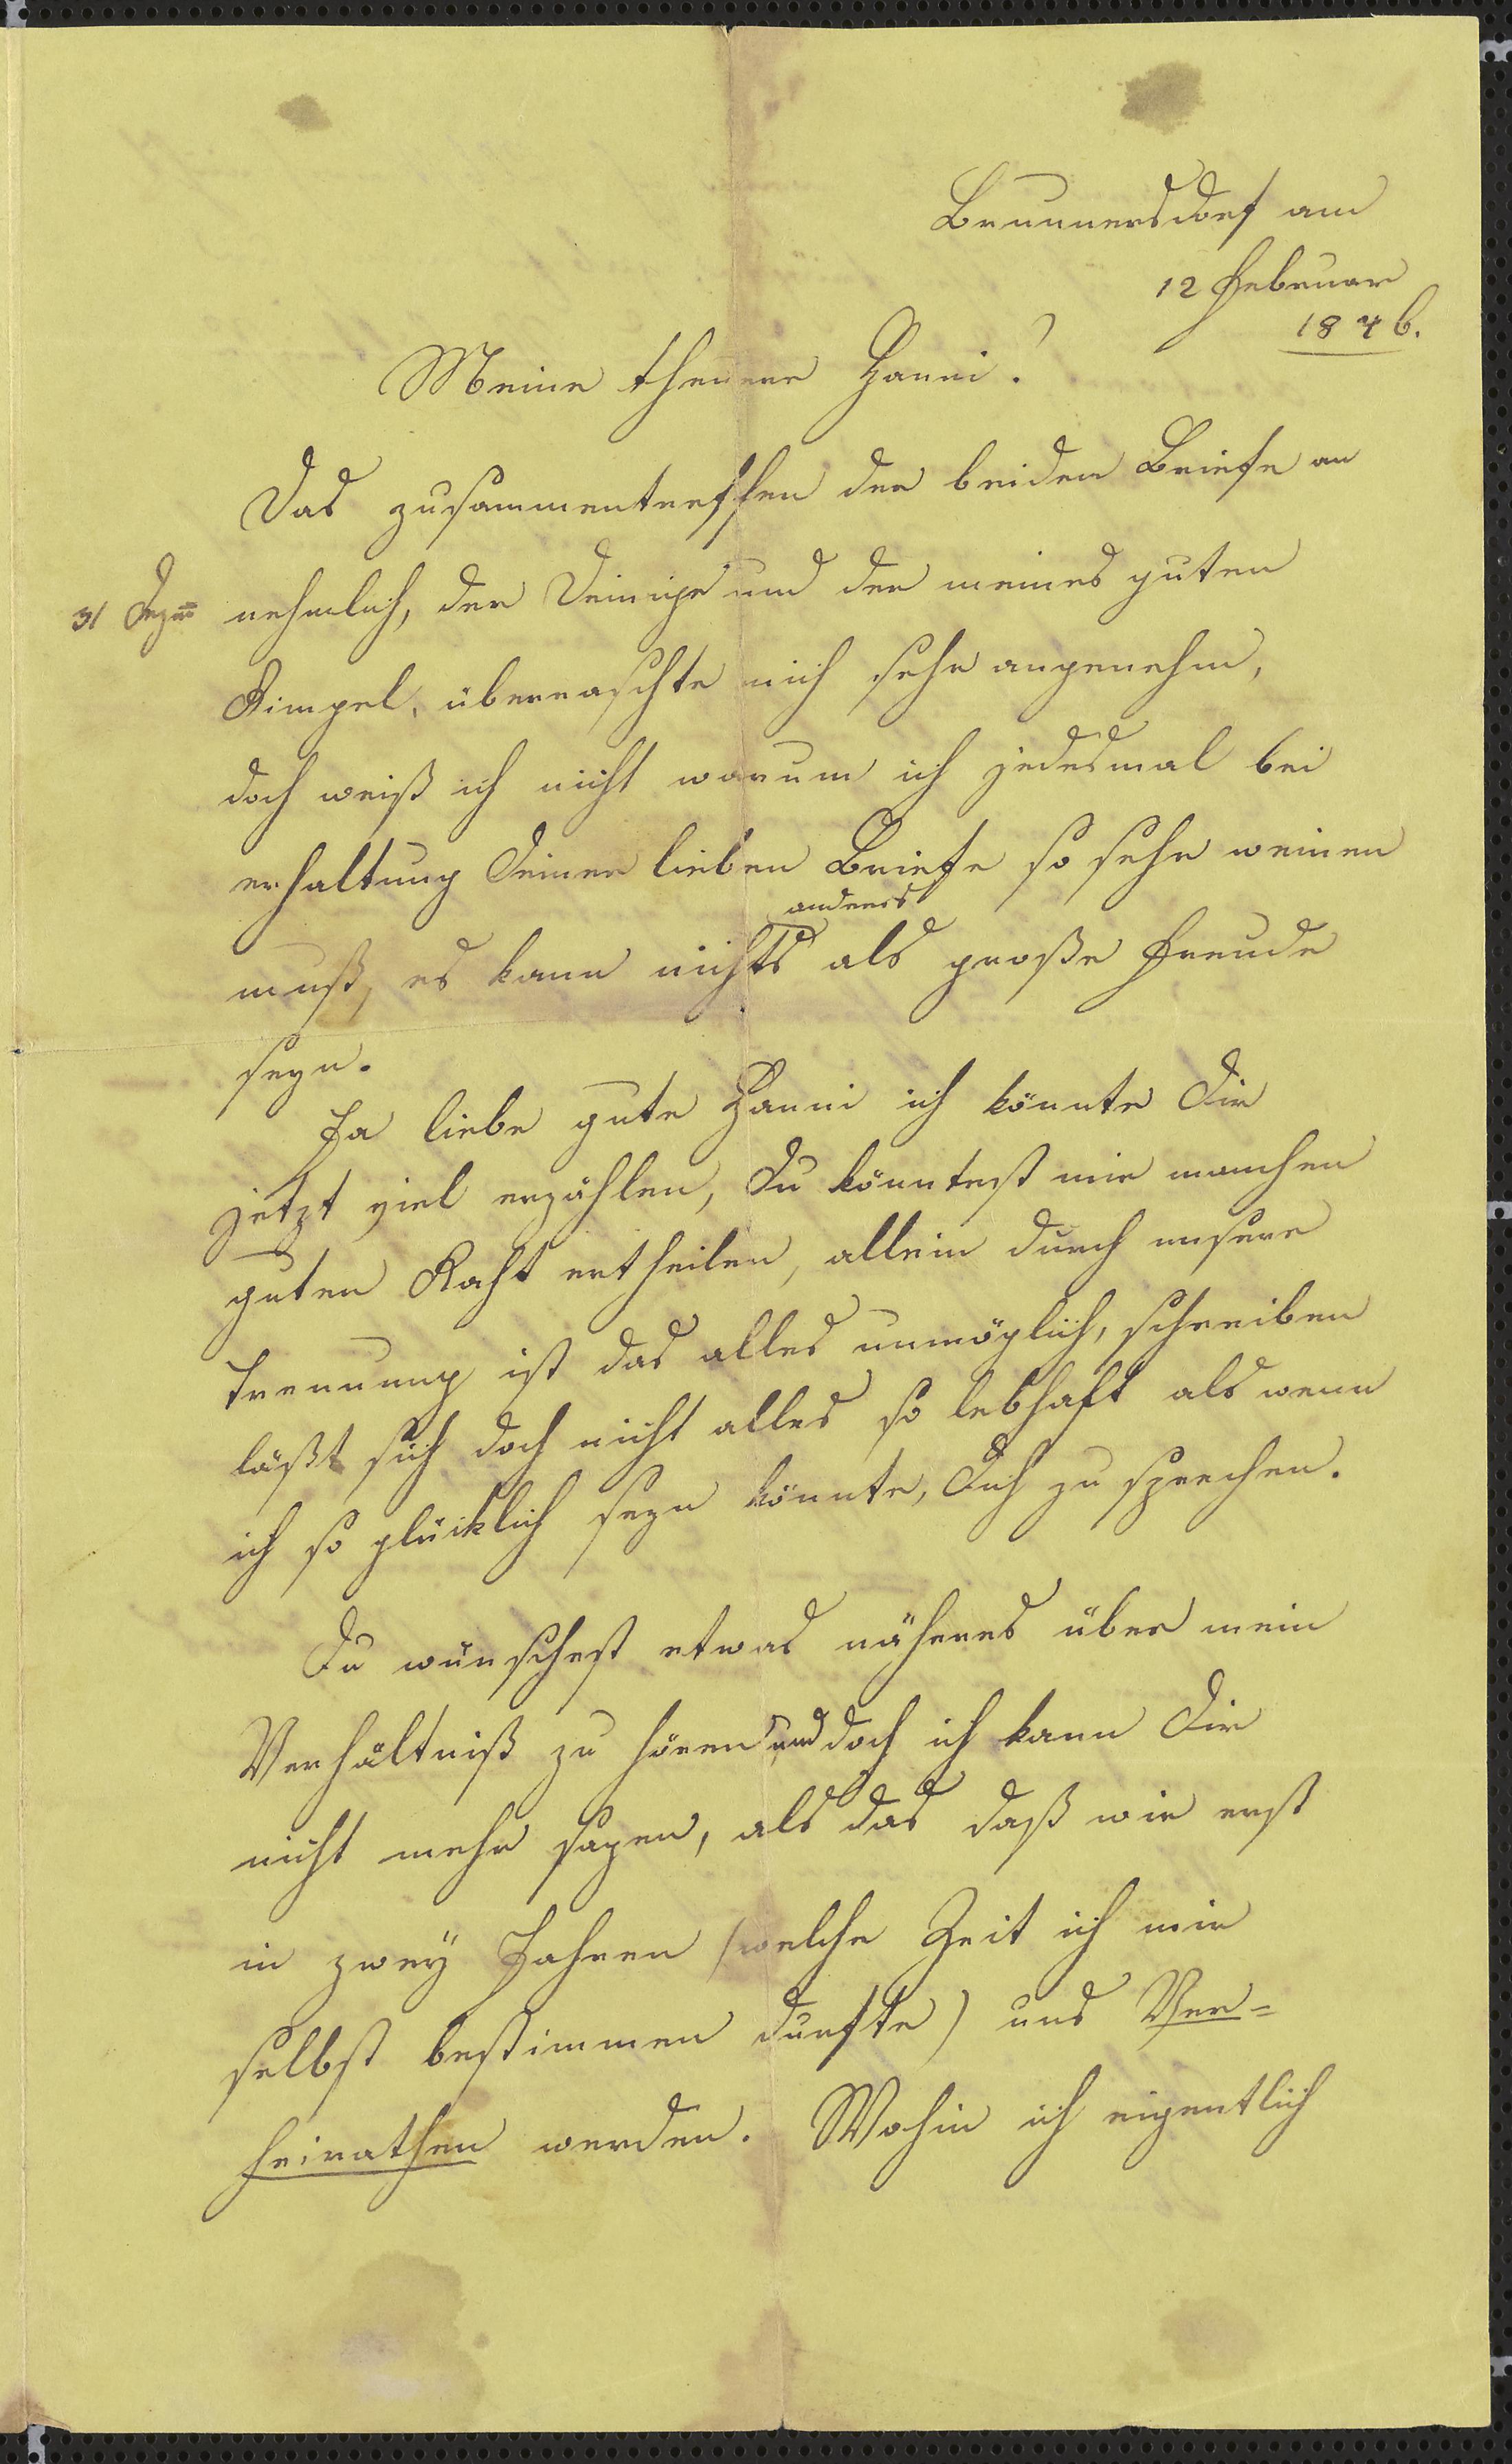 Brunnersdorf am
12 Februar
1846.
Meine theuere Hanni!
Das zusammentreffen der beiden Briefe an
31 Dezm nehmlich, der Deinige und der meines guten
Gimpel, überraschte mich sehr angenehm,
doch weiß ich nicht warum ich jedesmal bei
erhaltung Deiner lieben Briefe so sehr weinen
anders
muß, es kann nichts als große Freude
seyn.
Ja liebe gute Hanni ich könnte Dir
jetzt viel erzählen, Du könntest mir manchen
guten Raht ertheilen, allein durch unsere
Trennung ist das alles unmöglich, schreiben
läßt sich doch nicht alles so lebhaft als wenn
ich so glücklich seyn könnte, Dich zu sprechen.
Du wünschest etwas näheres über mein
Verhältniß zu hören und doch ich kann Dir
nicht mehr sagen, als das daß wir erst
in zwey Jahren (welche Zeit ich mir
selbst bestimmen durfte) uns Ver=
heirathen werden. Wohin ich eigentlich